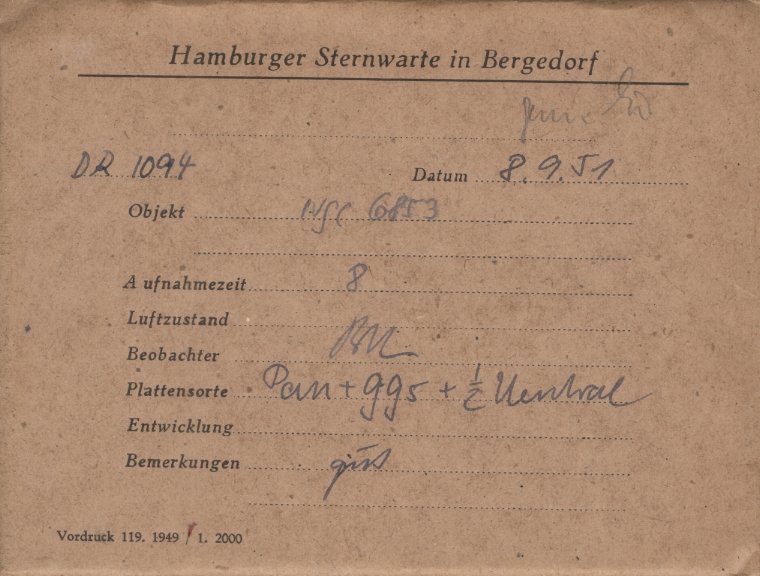 Hamburger Sternwarte in Bergedorf
DR 1094 Datum 8.9.51
Objekt NGC 6853
Aufnahmezeit 8
Luftzustand
Beobachter
Plattensorte Pan + gg5 + 1/2 Neutral
Entwicklung
Bemerkungen gut
Vordruck 119. 1949 / 1. 2000